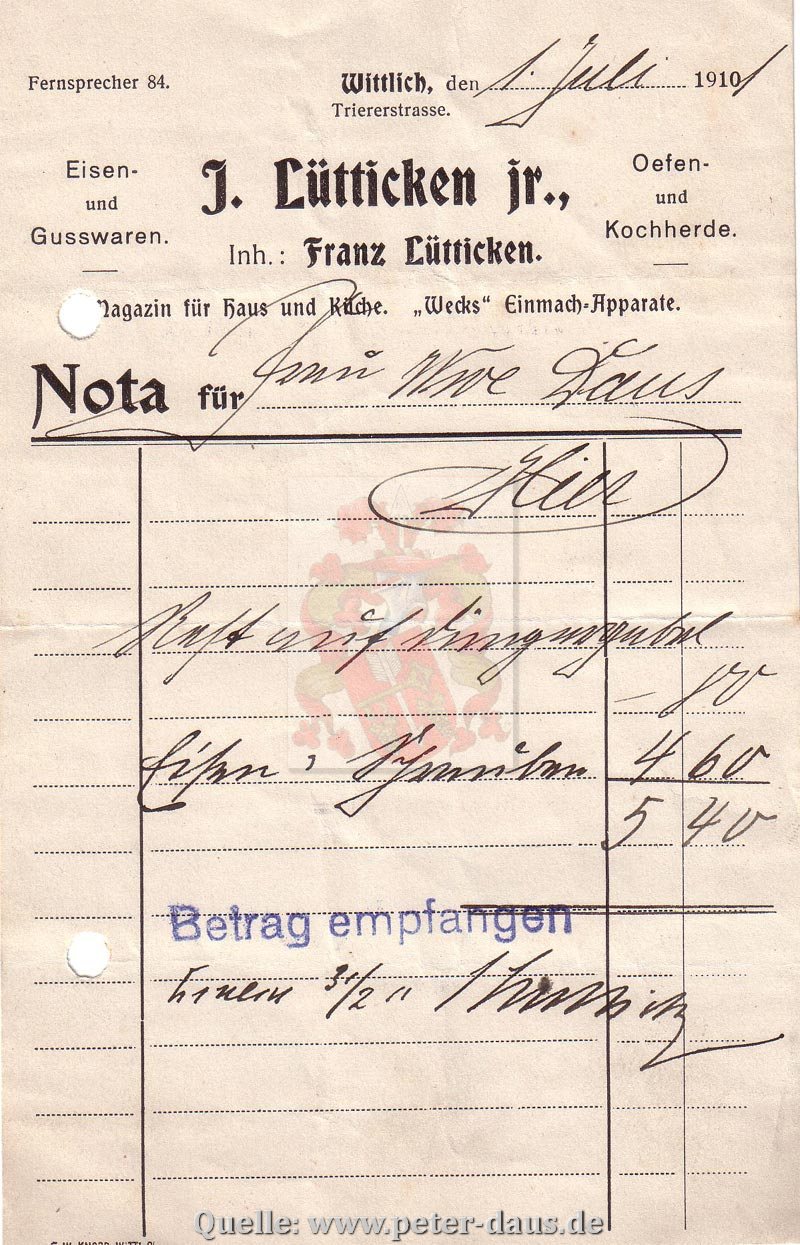 Fernsprecher 84.
Wittlich, den 1. Juli 1911
Triererstrasse.
Eisen-
und
Gusswaren.
J. Lütticken jr.,
Inh.: Franz Lütticken.
Oefen-
und
Kochherde.
Magazin für Haus und Küche. „Wecks" Einmach-Apparate.
Nota für Frau Wwe Daus
Hier
Rest auf Düngergabel
– 80
Eisen u Schrauben 4 60
5 40
Betrag empfangen
Quelle: www.peter-daus.de